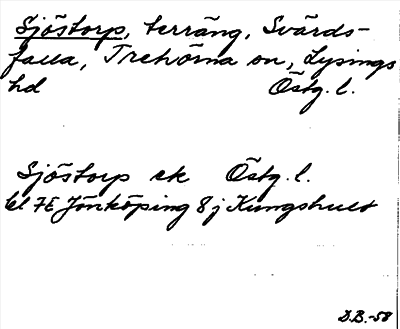 Sjöstorp, terräng, Svärds-
falla, Trehörna sn, Lysings
hd Östg. l.
Sjöstorp ek Östg. l.
bl 7E Jönköping 8 j Kungshult
D.B.-58